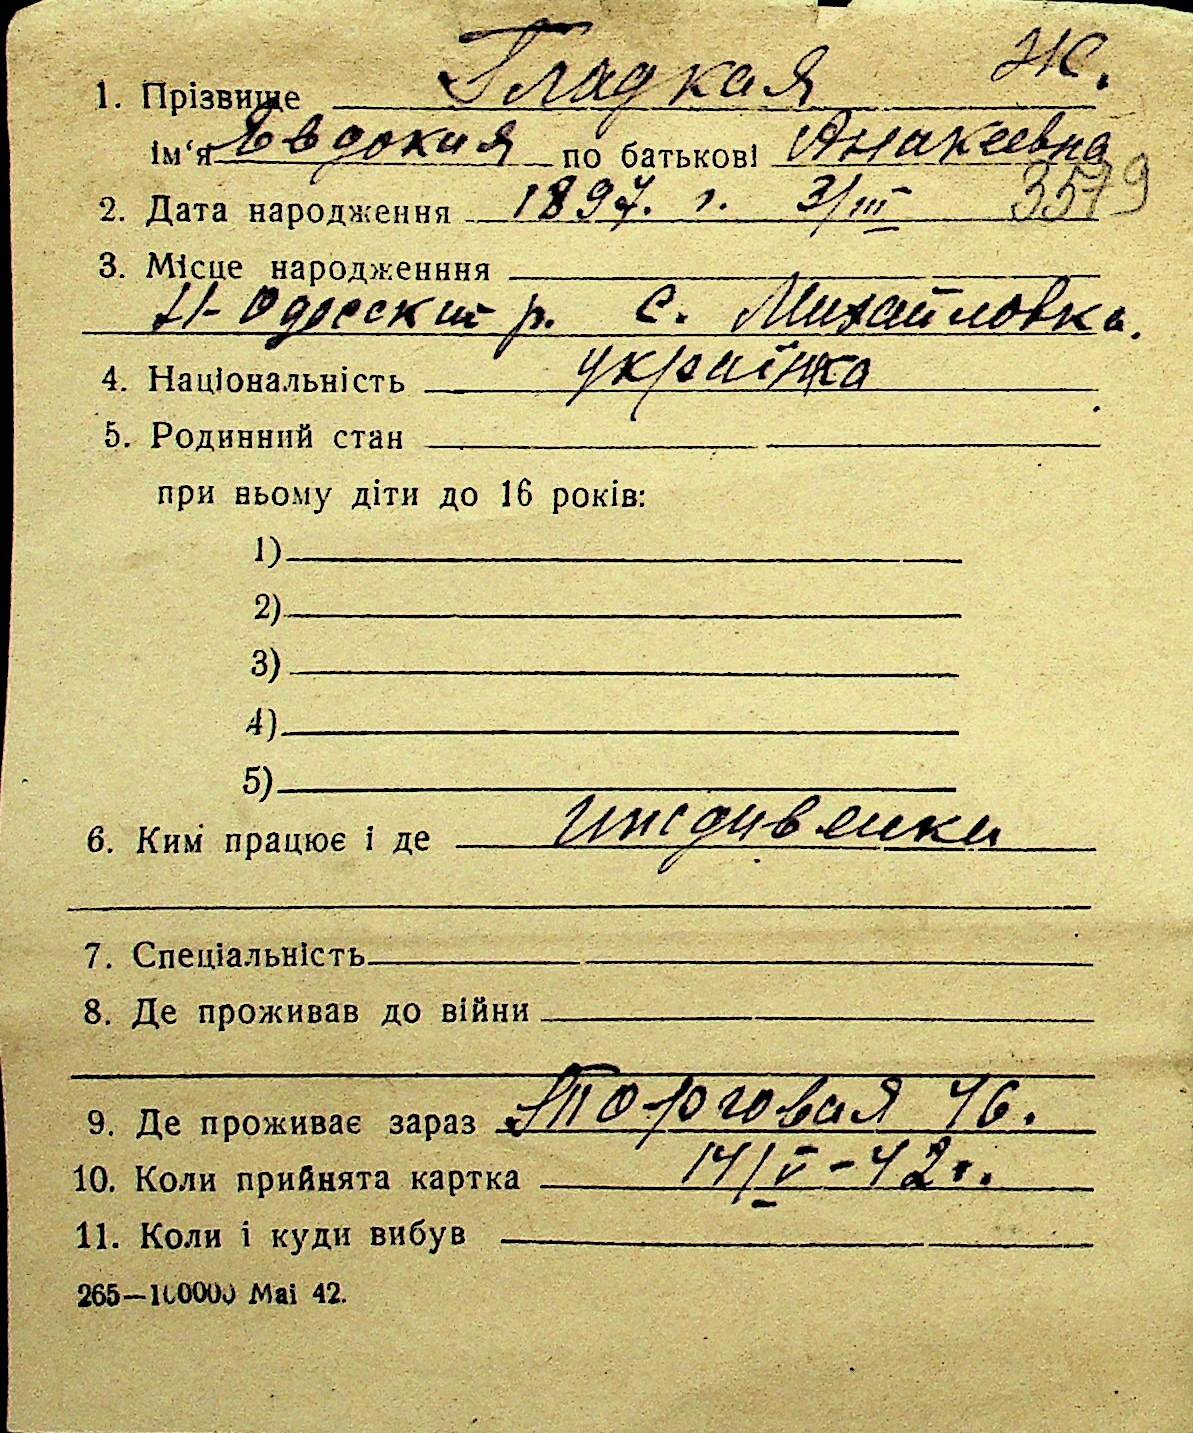 Ж.
1. Прізвище Гладкая
ім'я Евдокия по батькові Анакеевна
3579
2. Дата народження 1897. г. 3/III
3. Місце народженння
Н-Одесский р. с. Михайловка.
4. Національність українка
5. Родинний стан
при ньому діти до 16 років:
1)
2)
3)
4)
5)
6. Ким працює і де иждивенка
7. Спеціальність
8. Де проживав до війни
9. Де проживає зараз Торговая 46.
10. Коли прийнята картка 14/V-42г.
11. Коли і куди вибув
265—100000 Маі 42.